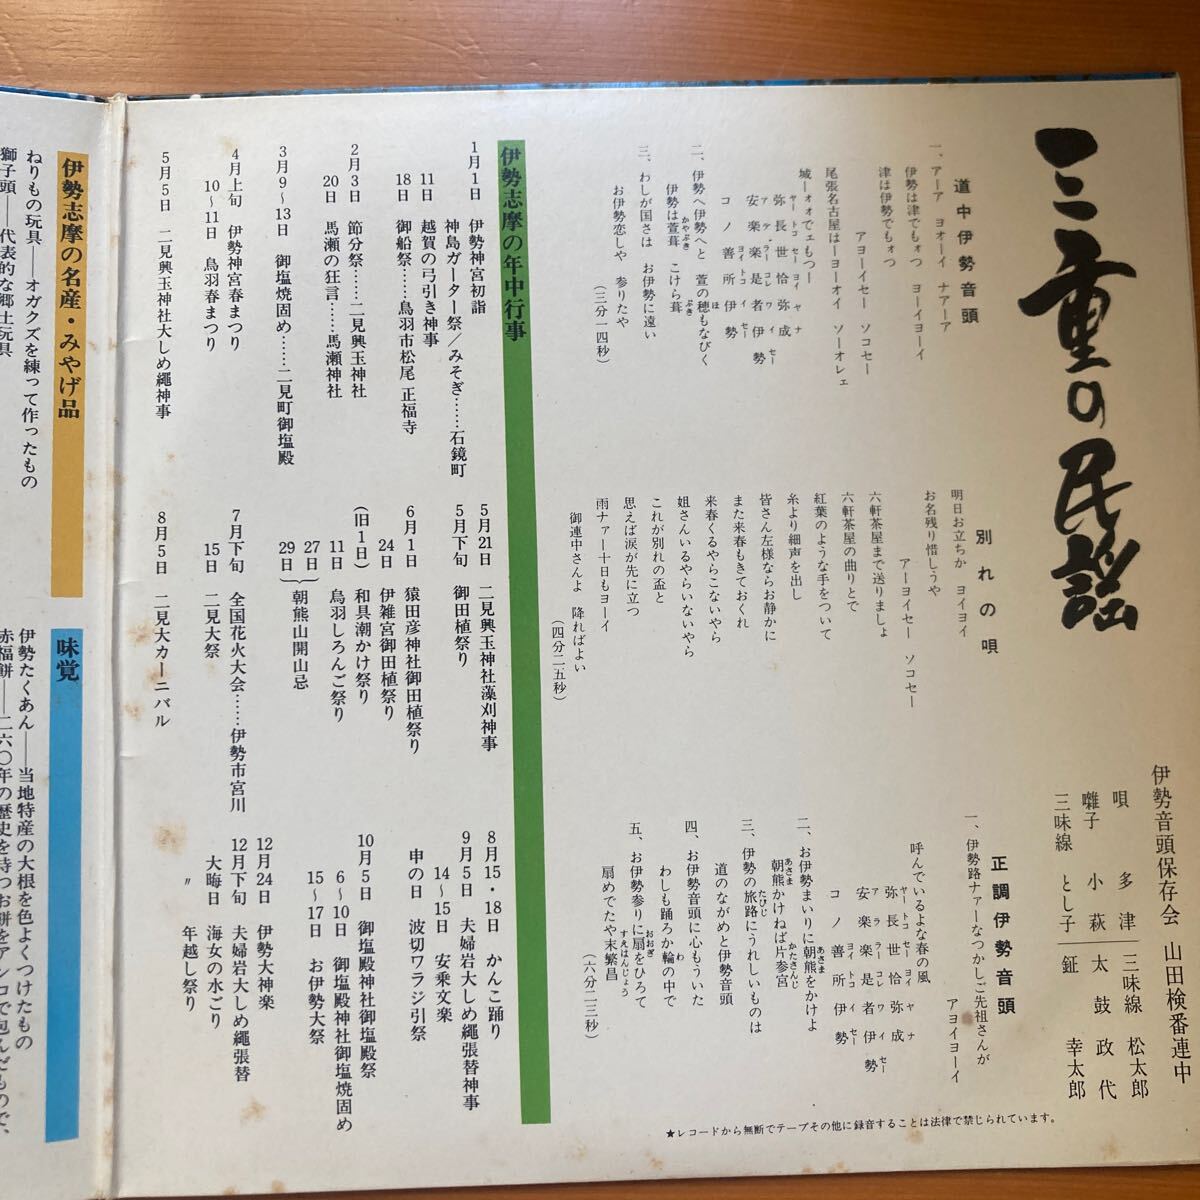 三重の民謡
伊勢音頭保存会 山田検番連中
唄 多津 三味線 松太郎
囃子 小萩 太鼓 政代
三味線 とし子 鉦 幸太郎
道中伊勢音頭
一、アーア ヨオーイ ナアーア
伊勢は津でもォつ ヨーイヨーイ
津は伊勢でもォつ
アヨーイセー ソコセー
尾張名古屋はーヨーオイ ソーオレェ
城ーォォでェもつー
ヤートコセーヨイヤナ
弥長世恰弥成
アアラーコレワイセー
安楽楽是者伊勢
ヨイトコイセー
コノ善所伊勢
二、伊勢へ伊勢へと 萱の穂もなびく
かやぶき ぶき ほ
伊勢は萱葺 こけら葺
三、わしが国さは お伊勢に遠い
お伊勢恋しや 参りたや
(三分一四秒)
別れの唄
明日お立ちか ヨイヨイ
お名残り惜しうや
アーヨイセー ソコセー
六軒茶屋まで送りましょ
六軒茶屋の曲りとで
紅葉のような手をついて
糸より細声を出し
皆さん左様ならお静かに
また来春もきておくれ
来春くるやらこないやら
姐さんいるやらいないやら
これが別れの盃と
思えば涙が先に立つ
雨ナァー十日もヨーイ
御連中さんよ 降ればよい
(四分二五秒)
正調伊勢音頭
一、伊勢路ナァーなつかしご先祖さんが
アヨイヨーイ
呼んでいるよな春の風
ヤートコセーヨイヤナ
弥長世恰弥成
アアラーコレワイセー
安楽楽是者伊勢
ヨイトコイセー
コノ善所伊勢
二、お伊勢まいりに朝熊をかけよ
あさま
朝熊かけねば片参宮
あさま かたさんじ
三、伊勢の旅路にうれしいものは
たびじ
道のながめと伊勢音頭
四、お伊勢音頭に心もういた
わしも踊ろか輪の中で
わ
五、お伊勢参りに扇をひろて
おおぎ
扇めでたや末繁昌
すえはんじょう
(六分二三秒)
伊勢志摩の年中行事
1月1日 伊勢神宮初詣
神島ガーター祭/みそぎ……石鏡町
11日 越賀の弓引き神事
18日 御船祭……鳥羽市松尾 正福寺
2月3日 節分祭……二見興玉神社
20日 馬瀬の狂言……馬瀬神社
3月9~13日 御塩焼固め……二見町御塩殿
4月上旬 伊勢神宮春まつり
10~11日 鳥羽春まつり
5月5日 二見興玉神社大しめ縄神事
5月21日 二見興玉神社藻刈神事
5月下旬 御田植祭り
6月1日 猿田彦神社御田植祭り
24日 伊雑宮御田植祭り
(旧1日) 和具潮かけ祭り
11日 鳥羽しろんご祭り
27日 朝熊山開山忌
29日
7月下旬 全国花火大会……伊勢市宮川
15日 二見大祭
8月5日 二見大カーニバル
8月15・18日 かんこ踊り
9月5日 夫婦岩大しめ縄張替神事
14~15日 安乗文楽
申の日 波切ワラジ引祭
10月5日 御塩殿神社御塩殿祭
6~10日 御塩殿神社御塩焼固め
15~17日 お伊勢大祭
12月24日 伊勢大神楽
12月下旬 夫婦岩大しめ縄張替
大晦日 海女の水ごり
〃 年越し祭り
伊勢志摩の名産・みやげ品
ねりもの玩具――オガクズを練って作ったもの
獅子頭――代表的な郷土玩具
味覚
伊勢たくあん――当地特産の大根を色よくつけたもの
赤福餅――二六〇年の歴史を持つお餅をアンコで包んだもので、
★レコードから無断でテープその他に録音することは法律で禁じられています。